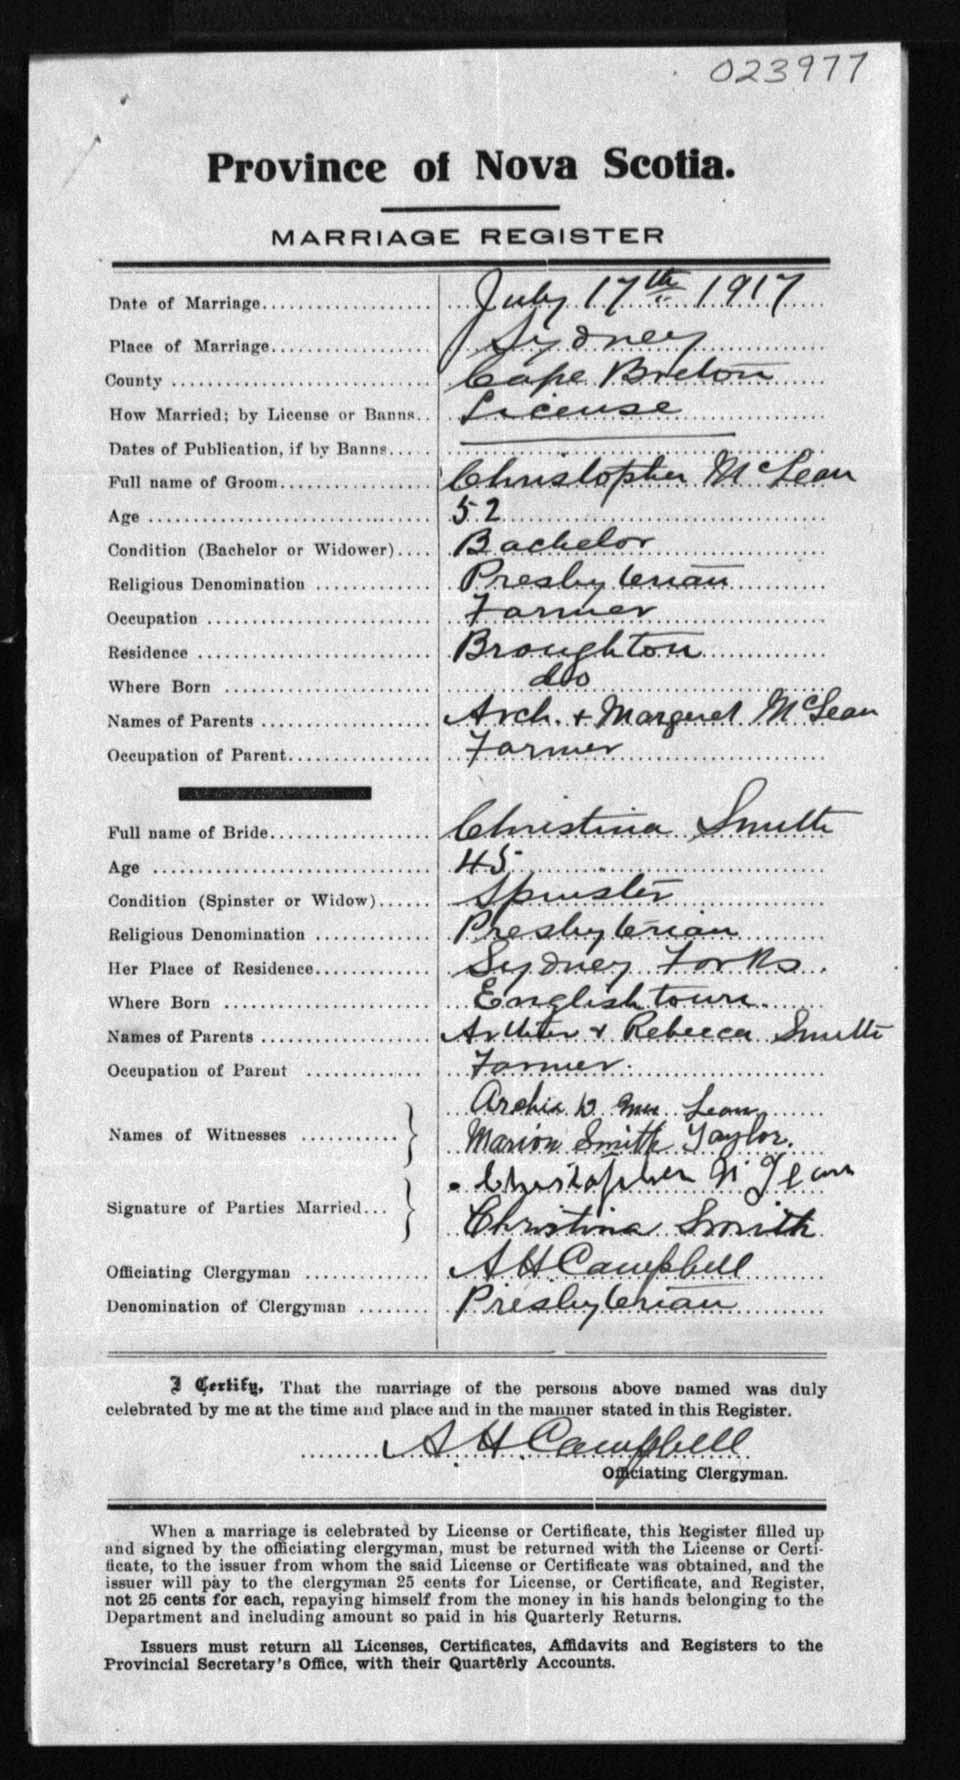 023977
Province of Nova Scotia.
MARRIAGE REGISTER
Date of Marriage.................... July 17th 1917
Place of Marriage................... Sydney
County .............................. Cape Breton
How Married; by License or Banns.. License
Dates of Publication, if by Banns.....
Full name of Groom.................. Christopher McLean
Age ................................. 52
Condition (Bachelor or Widower).... Bachelor
Religious Denomination .............. Presbyterian
Occupation .......................... Farmer
Residence ........................... Broughton
Where Born ......................... do
Names of Parents ................... Arch. + Margaret McLean
Occupation of Parent................. Farmer
Full name of Bride................... Christina Smith
Age ................................. 45
Condition (Spinster or Widow)...... Spinster
Religious Denomination .............. Presbyterian
Her Place of Residence.............. Sydney Forks.
Where Born ......................... Englishtown.
Names of Parents ................... Arthur + Rebecca Smith
Occupation of Parent .............. Farmer.
Archie Lean
Names of Witnesses ........... Marion Smith Taylor.
Christopher
Signature of Parties Married...
Christina Smith
Officiating Clergyman .............. A H Campbell
Denomination of Clergyman ........ Presbyterian
I Certify, That the marriage of the persons above named was duly
celebrated by me at the time and place and in the manner stated in this Register.
A. H. Campbell
Officiating Clergyman.
When a marriage is celebrated by License or Certificate, this Register filled up
and signed by the officiating clergyman, must be returned with the License or Certi-
ficate, to the issuer from whom the said License or Certificate was obtained, and the
issuer will pay to the clergyman 25 cents for License, or Certificate, and Register,
not 25 cents for each, repaying himself from the money in his hands belonging to the
Department and including amount so paid in his Quarterly Returns.
Issuers must return all Licenses, Certificates, Affidavits and Registers to the
Provincial Secretary's Office, with their Quarterly Accounts.